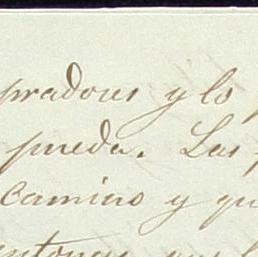 pradores y lo
pueda. Las
camino y qu
entonces